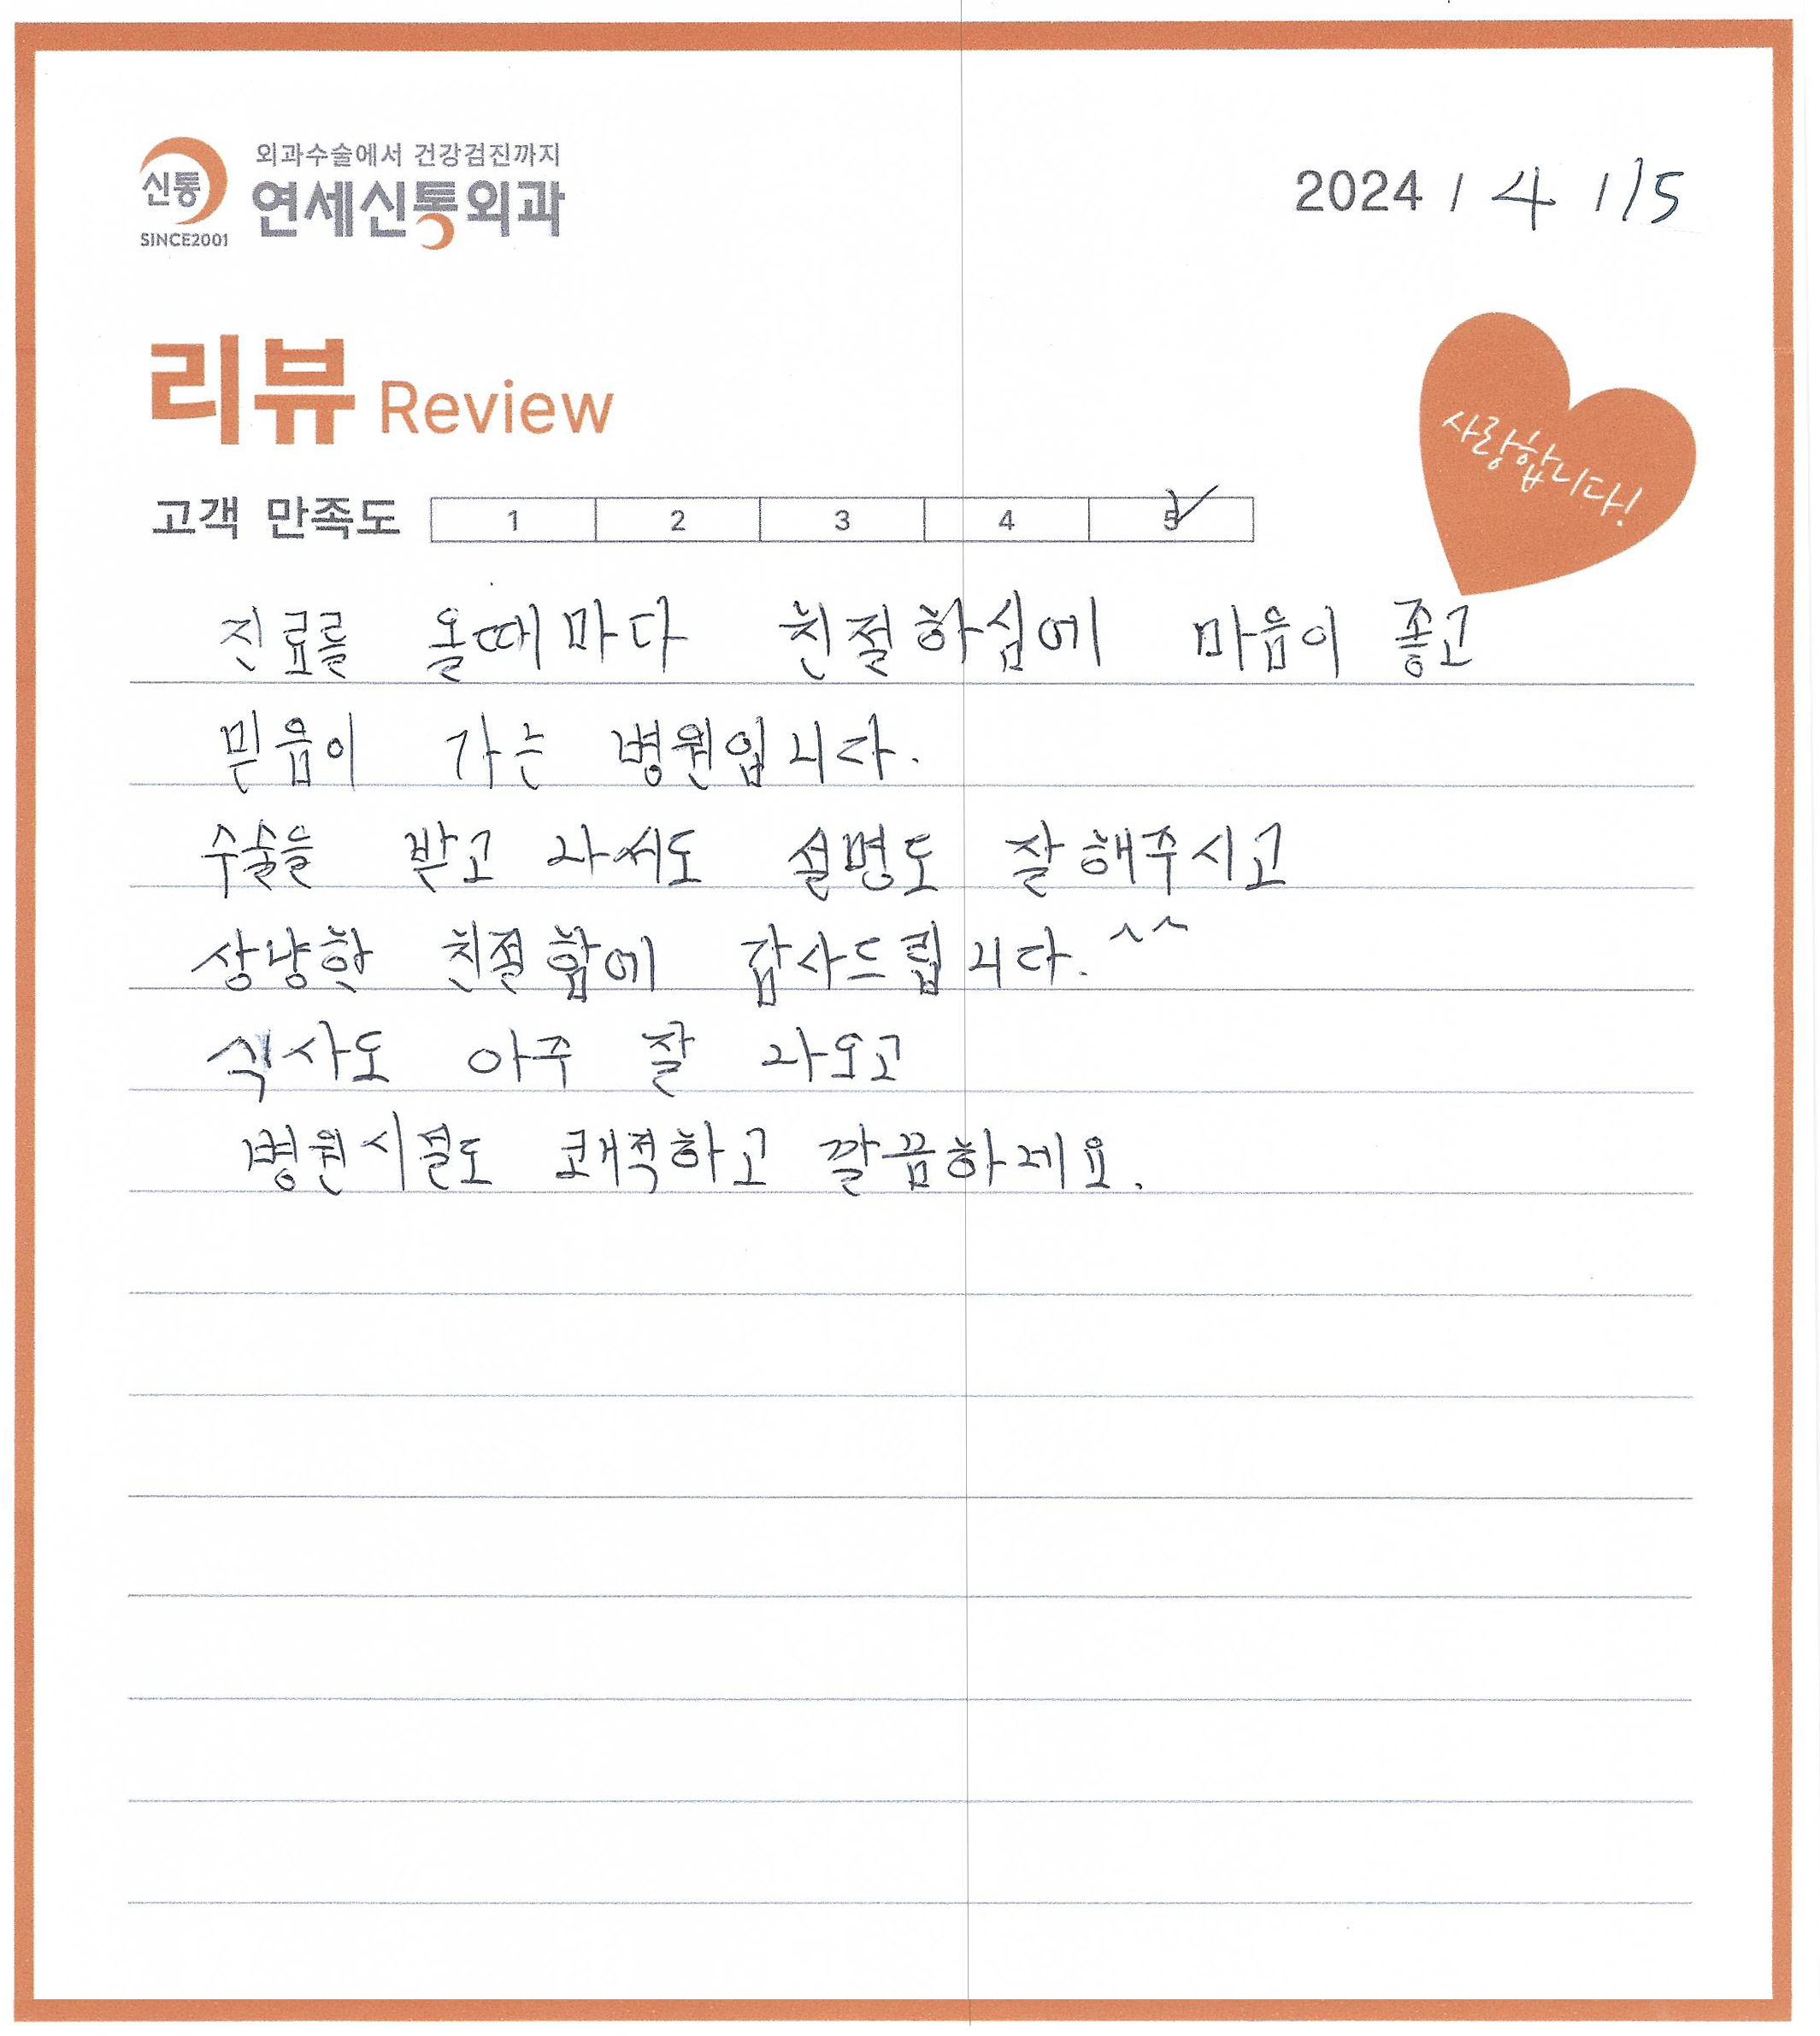 신통
SINCE2001
외과수술에서 건강검진까지
연세신통외과
2024 / 4 / 15
리뷰 Review
사랑합니다!
고객 만족도 1 2 3 4 5
진료를 올때마다 친절하심에 마음이 좋고
믿음이 가는 병원입니다.
수술을 받고 나서도 설명도 잘해주시고
상냥한 친절함에 감사드립니다. ^^
식사도 아주 잘 나오고
병원시설도 쾌적하고 깔끔하네요.